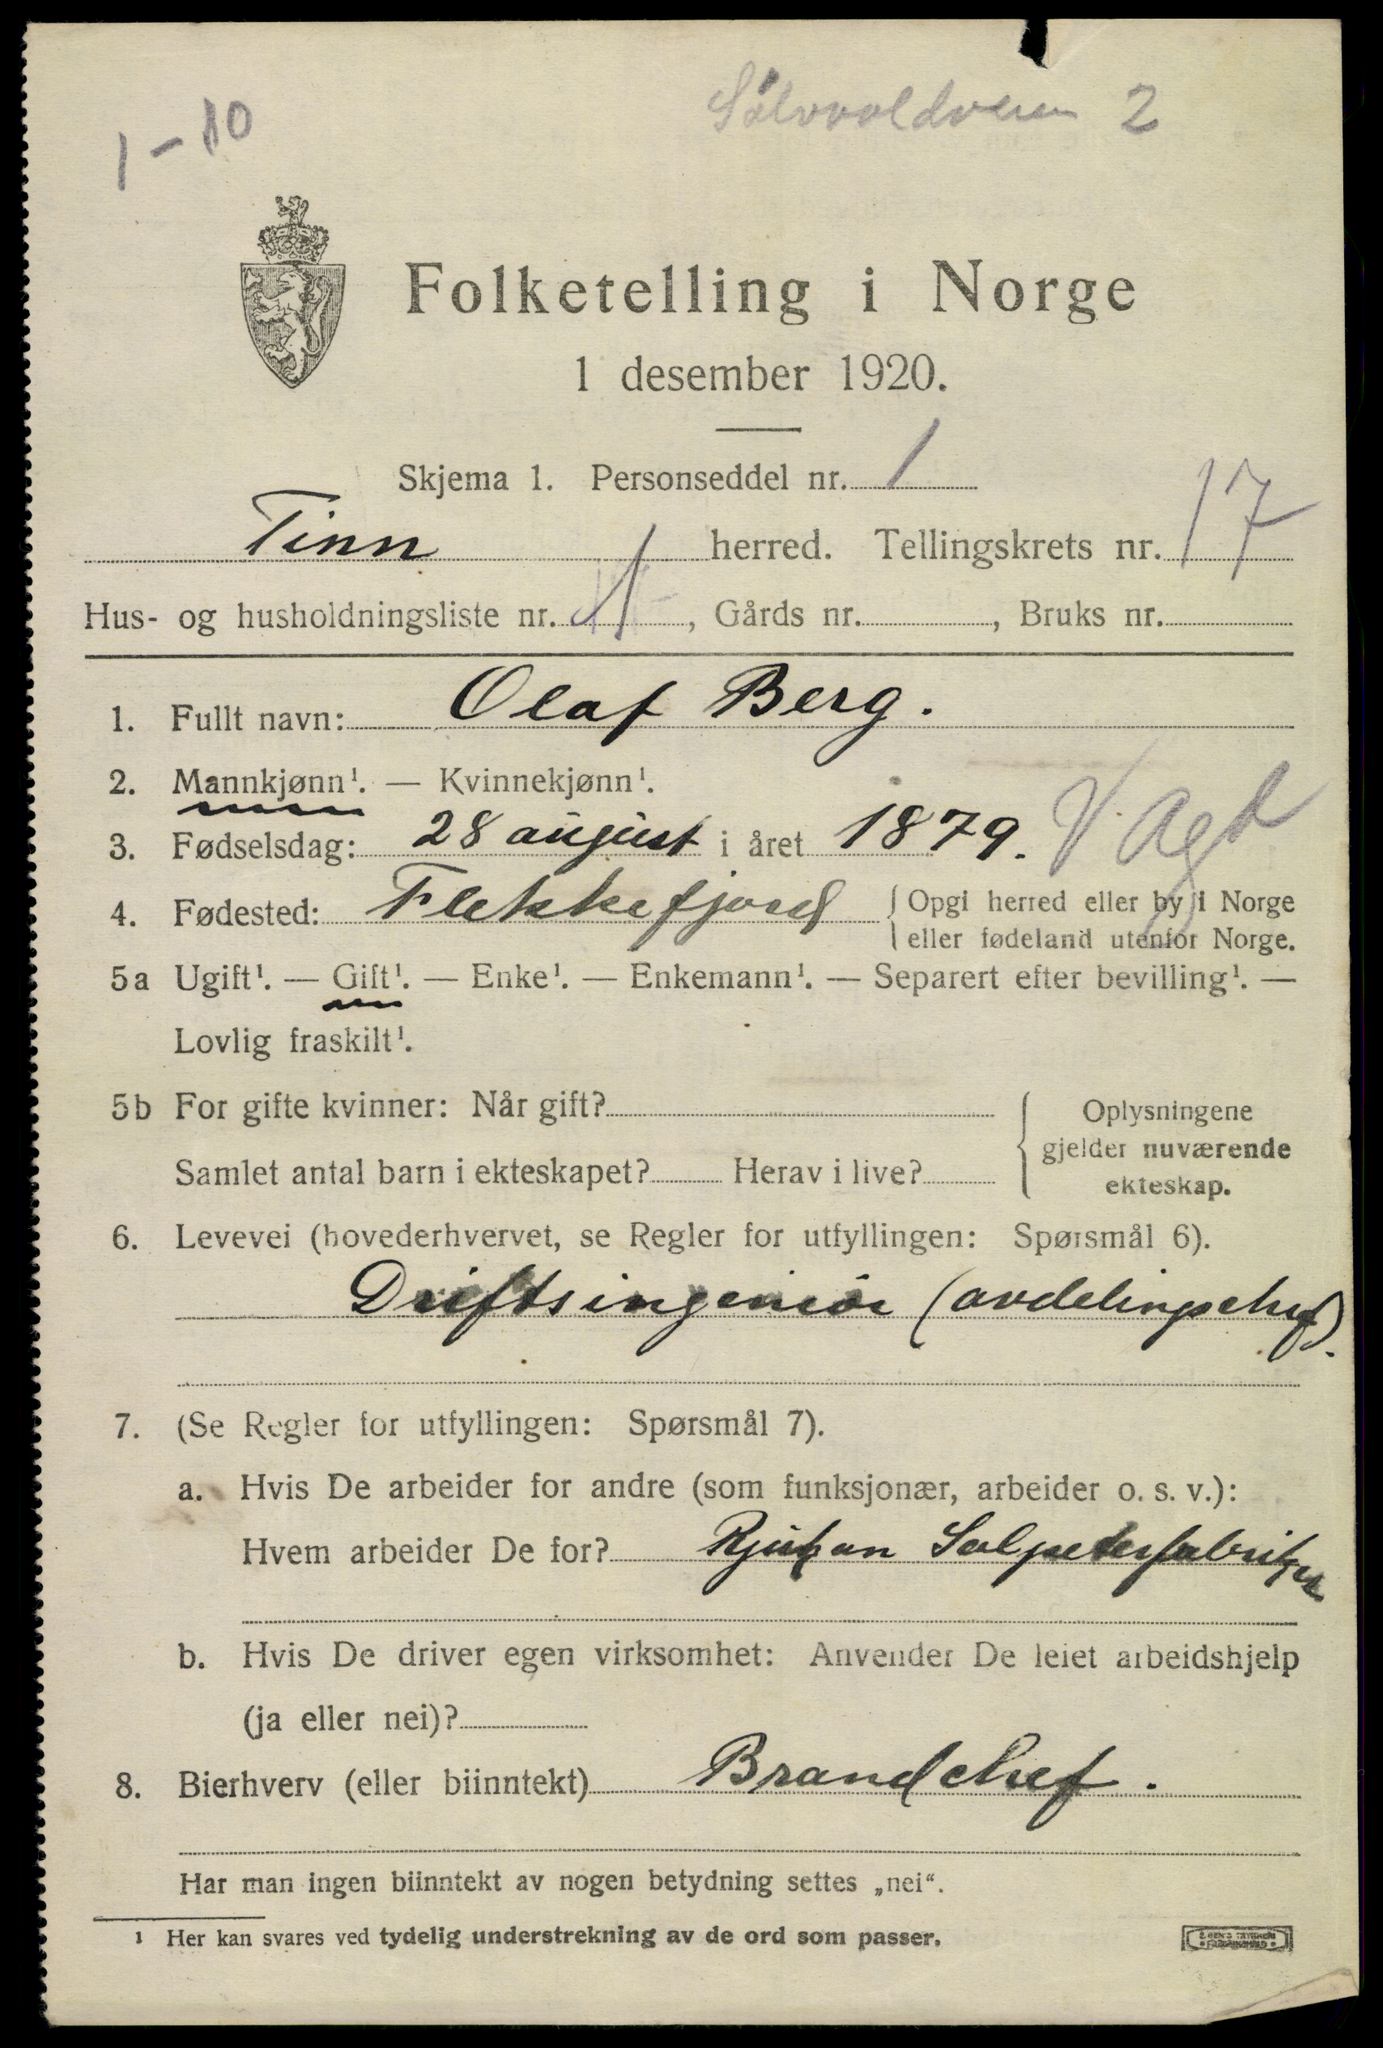 1-10
Sølvvoldveien 2
Folketelling i Norge
1 desember 1920.
Skjema 1. Personseddel nr. 1
Tinn herred. Tellingskrets nr. 17
Hus- og husholdningsliste nr. 1, Gårds nr. , Bruks nr.
1. Fullt navn: Olaf Berg.
2. Mannkjønn¹. — Kvinnekjønn¹.
3. Fødselsdag: 28 august i året 1879.
V. Agd
4. Fødested: Flekkefjord { Opgi herred eller by i Norge
eller fødeland utenfor Norge.
5a Ugift¹. — Gift¹. — Enke¹. — Enkemann¹. — Separert efter bevilling¹. —
Lovlig fraskilt¹.
5b For gifte kvinner: Når gift? { Oplysningene
gjelder nuværende
Samlet antal barn i ekteskapet? Herav i live?
ekteskap.
6. Levevei (hovederhvervet, se Regler for utfyllingen: Spørsmål 6).
Driftsingeniør (avdelingschef).
7. (Se Regler for utfyllingen: Spørsmål 7).
a. Hvis De arbeider for andre (som funksjonær, arbeider o. s. v.):
Hvem arbeider De for? Rjukan Salpeterfabriker
b. Hvis De driver egen virksomhet: Anvender De leiet arbeidshjelp
(ja eller nei)?
8. Bierhverv (eller biinntekt) Brandchef.
Har man ingen biinntekt av nogen betydning settes „nei“.
¹ Her kan svares ved tydelig understrekning av de ord som passer.